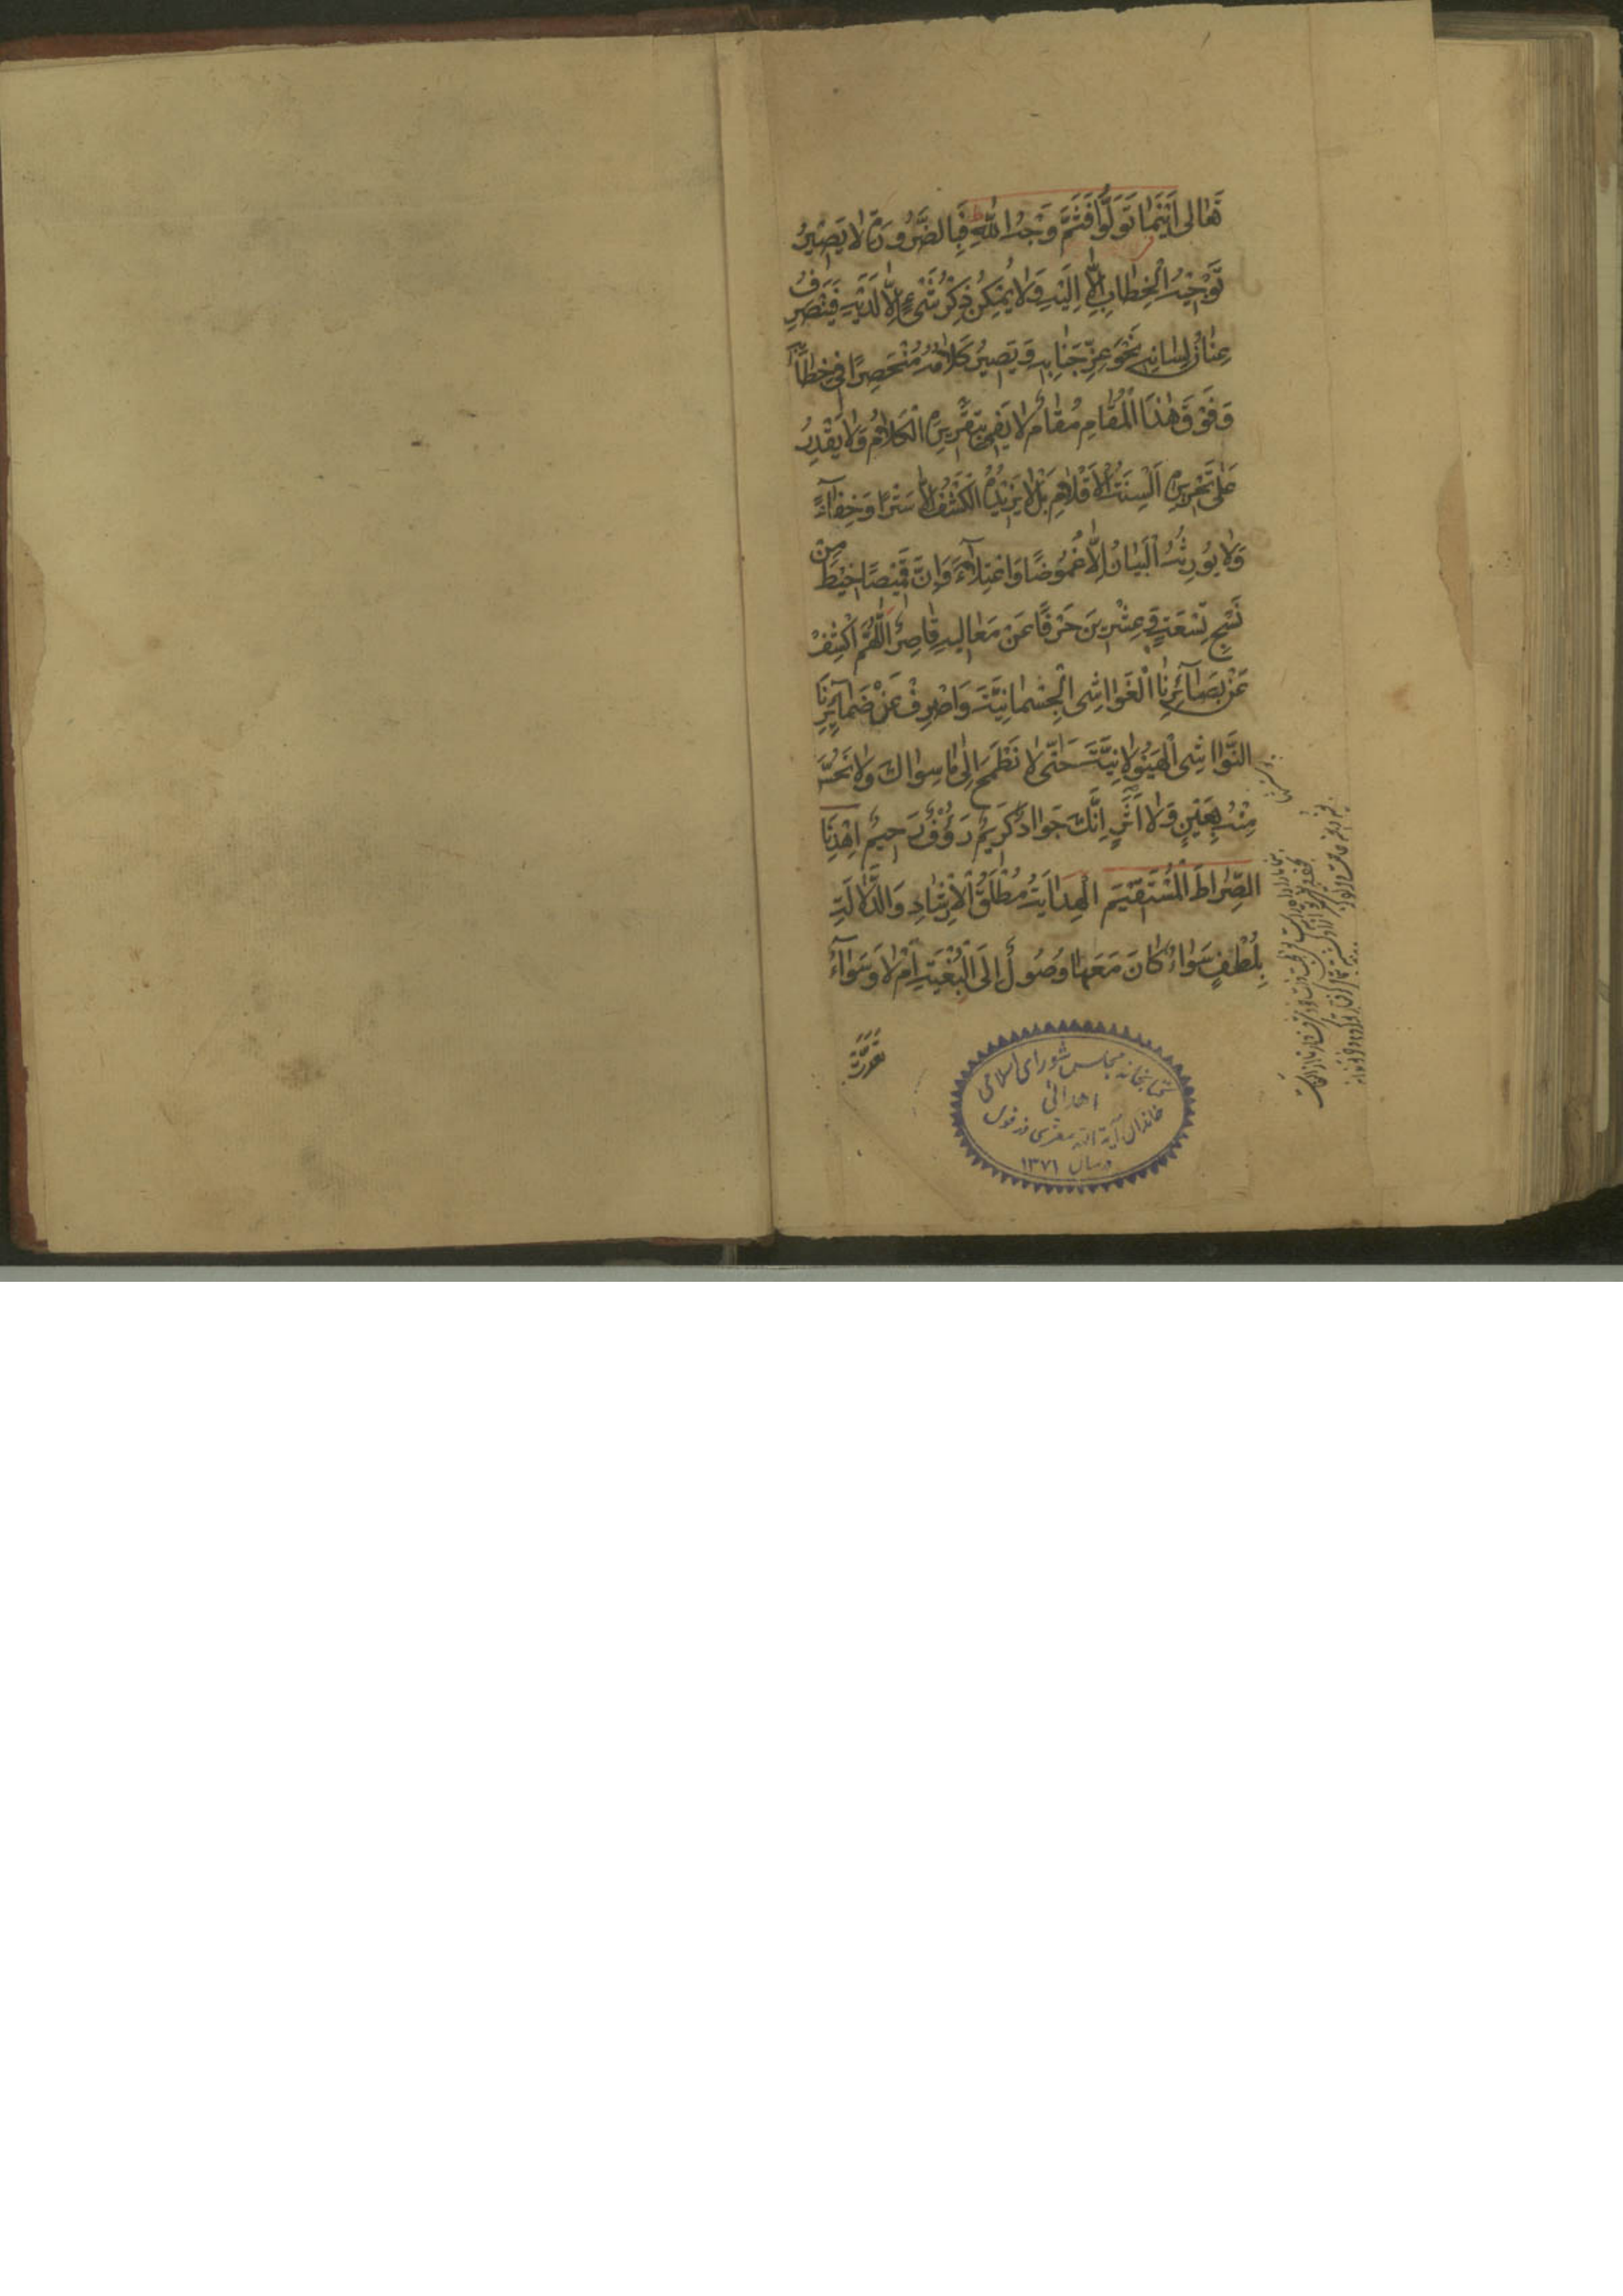 تَعٰالى اَيْنَمٰا تَوَلَّوْا فَثَمَّ وَجْهُ اللّٰهِ فَبِالضَّرُورَةِ لٰا يَصيٖرُ
تَوْجيٖهُ الْخِطٰابِ اِلّٰا اِلَيْهِ وَلٰا يُمْكِنُ ذِكْرُ شَىْءٍ اِلّٰا لَدَيْهِ فَيَنْصَرِفُ
عِنٰانُ لِسٰانِهِ نَحْوَ عِزِّ جَنٰابِهِ وَ يَصيٖرُ كَلٰامُهُ مُنْحَصِرًا فيٖ خِطٰابِهِ
وَفَوْقَ هٰذَا الْمَقٰامِ مَقٰامٌ لٰا يَفىٖ بِتَقْريٖرِهِ الْكَلٰامُ وَلٰا يَقْدِرُ
عَلٰى تَحْريٖرِهِ اَلْسِنَةُ الْاَقْلٰامِ بَلْ لٰا يَزيٖدُهُ الْكَشْفُ اِلّٰا سَتْرًا وَخِفٰآءً
وَلٰا يُورِثُهُ الْبَيٰانُ اِلّٰا غُمُوضًا وَاعْتِلٰآءً وَاِنَّ قَميٖصًا خيٖطَ مِنْ
نَسْجِ تِسْعَةٍ وَ عِشْريٖنَ حَرْفًا عَنْ مَعٰاليٖهِ قٰاصِرٌ اَللّٰهُمَّ اكْشِفْ
عَنْ بَصٰآئِرِنَا الْغَوٰاشِىَ الْجِسْمٰانِيَّةَ وَاصْرِفْ عَنْ ضَمٰآئِرِنَا
النَّوٰاشِىَ الْهَيُولٰانِيَّةَ حَتّٰى لٰا نَطْمَحَ اِلٰى مٰا سِوٰاكَ وَلٰا نُحِسَّ
مِنْهُ بِعَيْنٍ وَلٰا اَثَرٍ اِنَّكَ جَوٰادٌ كَريٖمٌ رَؤُفٌ رَحيٖمٌ اِهْدِنَا
الصِّرٰاطَ الْمُسْتَقيٖمَ الْهِدٰايَةُ مُطْلَقُ الْاِرْشٰادِ وَالدَّلٰالَةِ
بِلُطْفٍ سَوٰاءٌ كٰانَ مَعَهٰا وُصُولٌ اِلَى الْبُغْيَةِ اَمْ لٰا وَسَوٰآءٌ
تعدّت
كتابخانه مجلس شوراى اسلامى
اهدائى
خاندان آية الله معزى دزفولى
در سال ١٣٧١